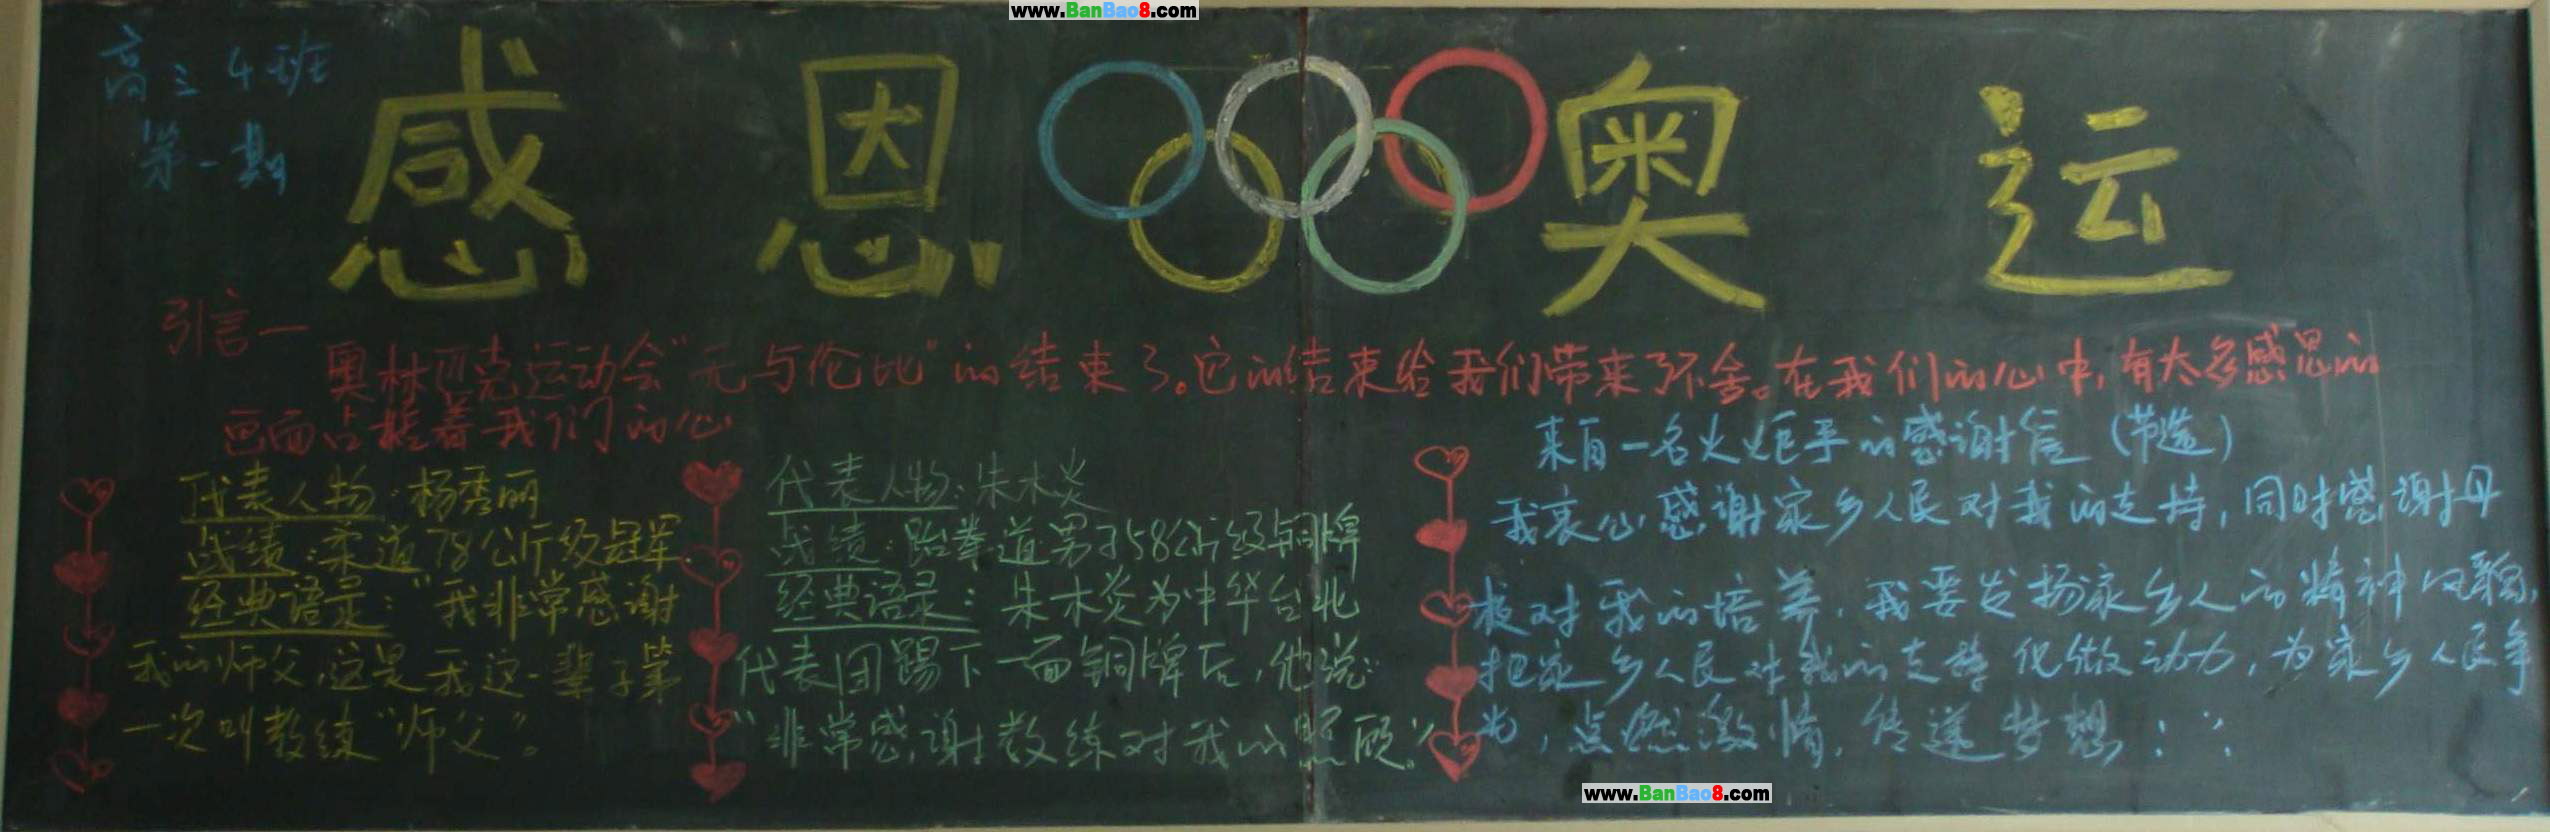 www.BanBao8.com
高三4班
第一期
感恩 奥运
引言一
奥林匹克运动会"无与伦比"的结束了。它的结束给我们带来了不舍。在我们的心中,有太多感恩的
画面占据着我们的心
代表人物:杨秀丽
战绩:柔道78公斤级冠军
经典语录:"我非常感谢
我的师父,这是我这一辈子第
一次叫教练"师父"。
代表人物:朱木炎
战绩:跆拳道男子58公斤级铜牌
经典语录:朱木炎为中华台北
代表团踢下一面铜牌后,他说:
"非常感谢教练对我的照顾。"
来自一名火炬手的感谢信(节选)
我衷心感谢家乡人民对我的支持,同时感谢母
校对我的培养,我要发扬家乡人的精神风貌,
把家乡人民对我的支持化做动力,为家乡人民争
光,点燃激情,传递梦想!
www.BanBao8.com